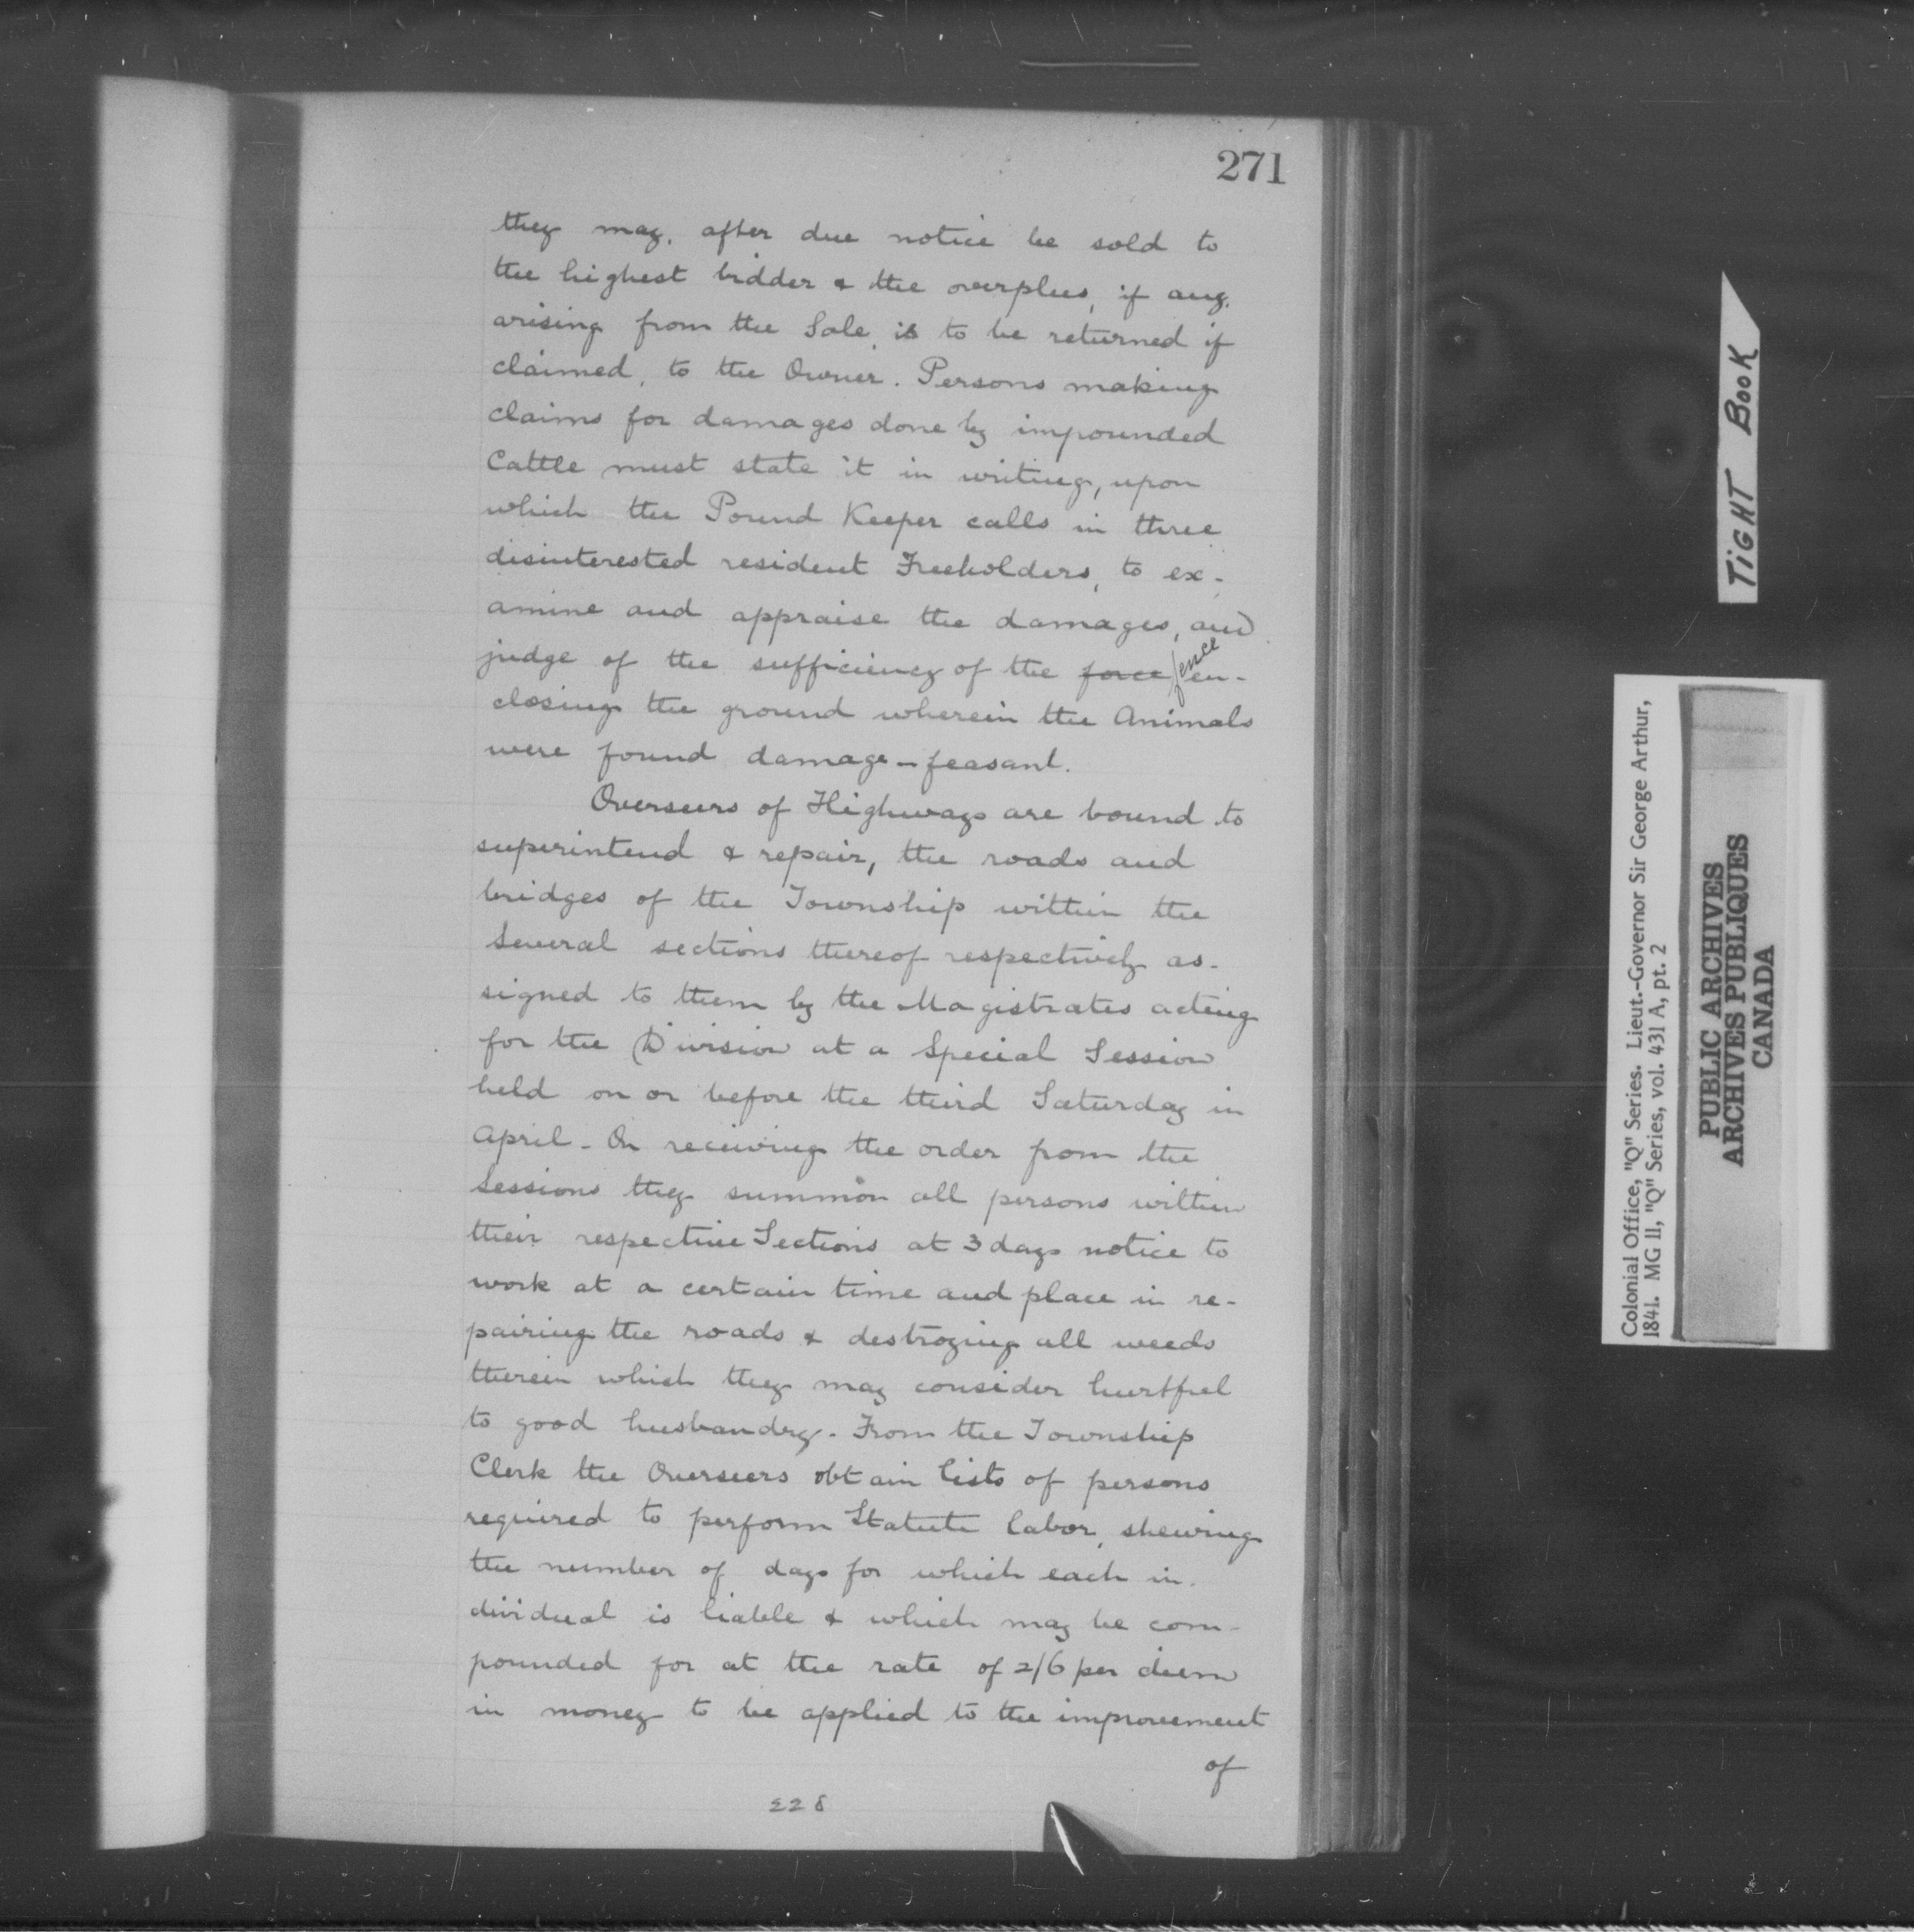 271
they may, after due notice be sold to
the highest bidder & the overplus, if any,
arising from the Sale, is to be returned if
claimed, to the Owner. Persons making
claims for damages done by impounded
Cattle must state it in writing, upon
which the Pound Keeper calls in three
disinterested resident Freeholders, to ex-
amine and appraise the damages, and
judge of the sufficiency of the force fence en-
closing the ground wherein the Animals
were found damage-feasant.
Overseers of Highways are bound to
superintend & repair, the roads and
bridges of the Township within the
Several sections thereof respectively as-
signed to them by the Magistrates acting
for the Division at a Special Session
held on or before the third Saturday in
April - On receiving the order from the
Sessions they summon all persons within
their respective Sections at 3 days notice to
work at a certain time and place in re-
pairing the roads & destroying all weeds
therein which they may consider hurtful
to good husbandry. From the Township
Clerk the Overseers obtain lists of persons
required to perform Statute labor, shewing
the number of days for which each in-
dividual is liable & which may be com-
pounded for at the rate of 2/6 per diem
in money to be applied to the improvement
of
228
TIGHT BOOK
Colonial Office, "Q" Series. Lieut.-Governor Sir George Arthur,
1841. MG 11, "Q" Series, vol. 431 A, pt. 2
PUBLIC ARCHIVES
ARCHIVES PUBLIQUES
CANADA